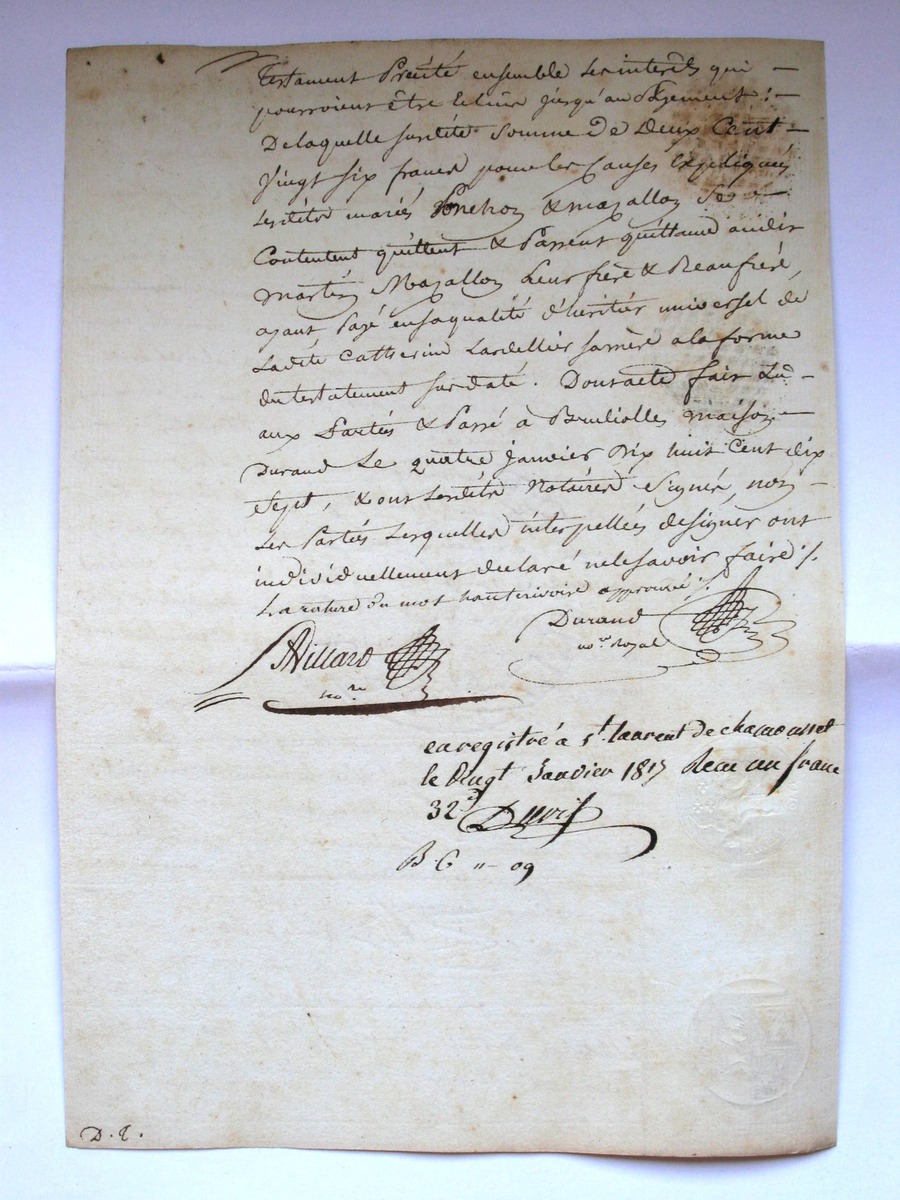 testament Précité ensemble les interêts qui —
pourroient être echus jusqu'au Payement :—
De laquelle susdité Somme De Deux Cent —
Vingt six francs pour les Causes Expliqués
Lesdits mariés Ponchon & mazallon Se —
Contentent quittent & Passent quittance audit
martin Mazallon Leur frère & Beaufrère,
ayant Payé ensaqualité d'héritier universel de
Ladité Catherine Lardellier sa mère a la forme
du testatement Susdaté. Dont acte fait Lu —
aux Partiés & Passé à Brulliolles maison —
Durand Le quatre janvier Dix huit Cent dix
Sept, & ont Lesdits Notaires Signé, non —
Les Partiés Lesquelles interpellées de signer ont
individuellement declaré ne le savoir faire ./.
La rature du mot hauterivoire approuvé ./.
Durand
no.re Royal
Villard
no.re
enregistré a st. laurent de chamousset
le vingt Janvier 1817 Recu un franc
32
B. C 11 - 09
D. T.